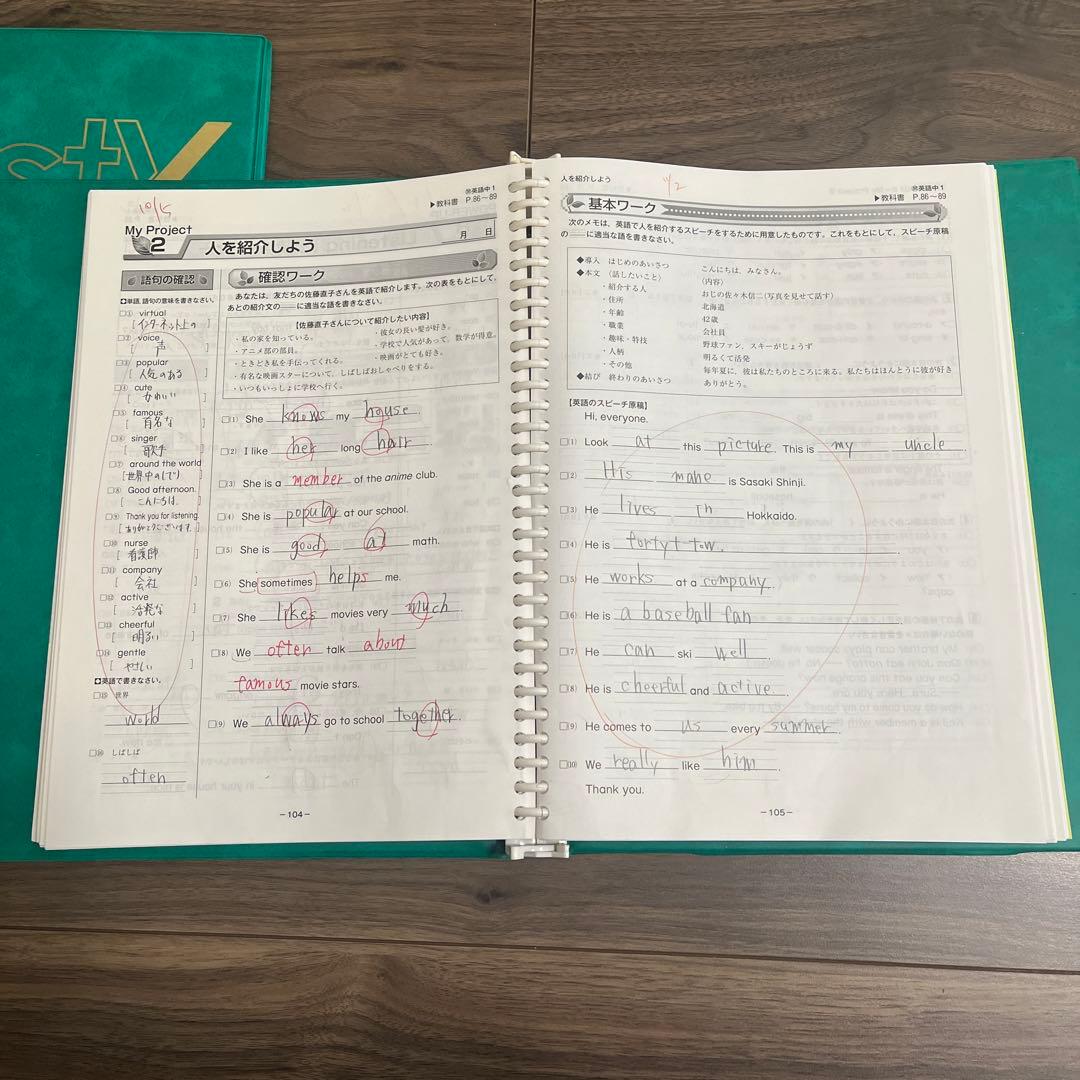 sty
10/15
㊥英語中1
▶教科書 P.86~89
My Project
2 人を紹介しよう
月 日
語句の確認
✿単語、語句の意味を書きなさい。
□① virtual
[インターネット上の]
□② voice
[声]
□③ popular
[人気のある]
□④ cute
[かわいい]
□⑤ famous
[有名な]
□⑥ singer
[歌手]
□⑦ around the world
[世界中の(で)]
□⑧ Good afternoon.
[こんにちは.]
□⑨ Thank you for listening.
[ありがとうございます.]
□⑩ nurse
[看護師]
□⑪ company
[会社]
□⑫ active
[活発な]
□⑬ cheerful
[明るい]
□⑭ gentle
[やさしい]
✿英語で書きなさい。
□⑮ 世界
world
□⑯ しばしば
often
確認ワーク
あなたは、友だちの佐藤直子さんを英語で紹介します。次の表をもとにして、
あとの紹介文の___に適当な語を書きなさい。
【佐藤直子さんについて紹介したい内容】
・私の家を知っている。 ・彼女の長い髪が好き。
・アニメ部の部員。 ・学校で人気があって、数学が得意。
・ときどき私を手伝ってくれる。 ・映画がとても好き。
・有名な映画スターについて、しばしばおしゃべりをする。
・いつもいっしょに学校へ行く。
□(1) She knows my house.
□(2) I like her long hair.
□(3) She is a member of the anime club.
□(4) She is popular at our school.
□(5) She is good at math.
□(6) She sometimes helps me.
□(7) She likes movies very much.
□(8) We often talk about
famous movie stars.
□(9) We always go to school together.
-104-
人を紹介しよう
11/2
㊥英語中1
▶教科書 P.86~89
基本ワーク
次のメモは、英語で人を紹介するスピーチをするために用意したものです。これをもとにして、スピーチ原稿
の___に適当な語を書きなさい。
◆導入 はじめのあいさつ こんにちは、みなさん。
◆本文 (話したいこと) (内容)
・紹介する人 おじの佐々木信二(写真を見せて話す)
・住所 北海道
・年齢 42歳
・職業 会社員
・趣味・特技 野球ファン、スキーがじょうず
・人柄 明るくて活発
・その他 毎年夏に、彼は私たちのところに来る。私たちはほんとうに彼が好き
◆結び 終わりのあいさつ ありがとう。
【英語のスピーチ原稿】
Hi, everyone.
□(1) Look at this picture. This is my uncle.
□(2) His mane is Sasaki Shinji.
□(3) He lives in Hokkaido.
□(4) He is forty t tow.
□(5) He works at a company.
□(6) He is a baseball fan.
□(7) He can ski well.
□(8) He is cheerful and active.
□(9) He comes to us every summer.
□(10) We really like him.
Thank you.
-105-